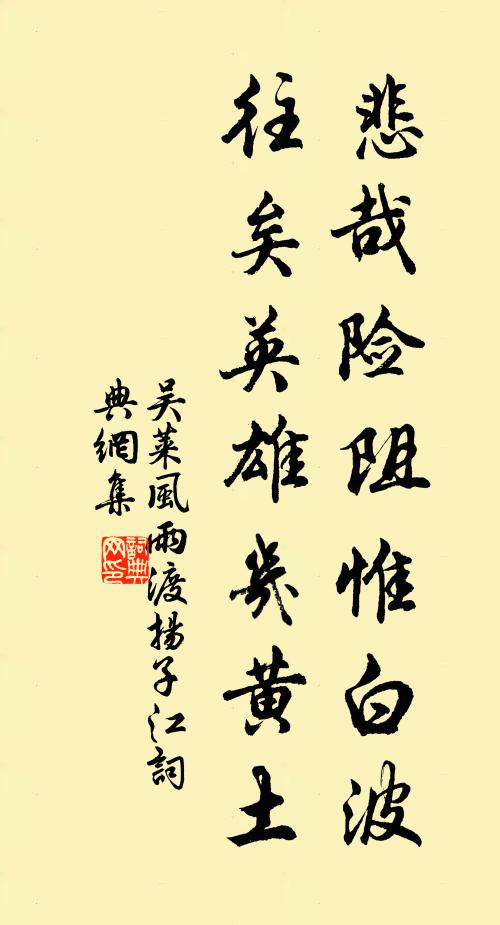 悲哉险阻惟白波
往矣英雄幾黄土
吴莱風雨渡揚子江詞
典網集
詞典网印